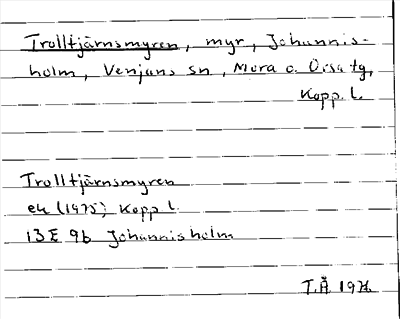 Trolltjärnsmyren, myr, Johannis-
holm, Venjans sn, Mora o. Orsa tg,
Kopp. l.
Trolltjärnsmyren
ek (1975) Kopp l.
13E 9b Johannisholm
T.Å 1976